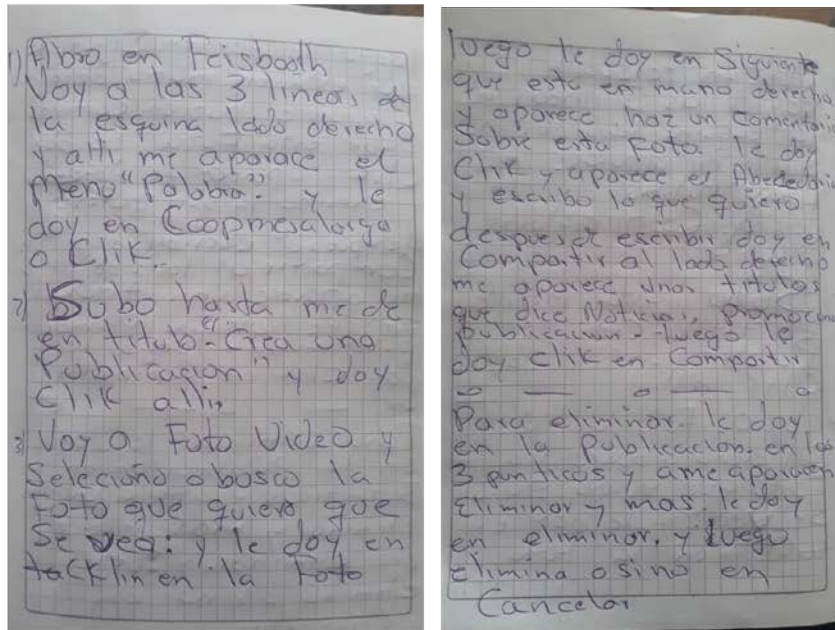 1) Abro en Feisbooth
Voy a las 3 lineas, de
la esquina lado derecho
y alli me aparace el
Menu "Palabra". y le
doy en Coopmesalarga
o Clik..
2) Subo hasta me de
en titulo "Crea una
Publicacion" y doy
Clik alli,
3) Voy a Foto Video y
Seleciono o busco la
Foto que quiero que
Se vea: y le doy en
tacklin en la Foto
luego le doy en Siguiente
que esta en mano derecha
y aparece haz un comentario
Sobre esta Foto. le doy
Clik y aparece el Abecedario
y escribo lo que quiero
despues de escribir doy en
Compartir al lado derecho
me aparece unos titulos
que dice Noticias, promocion
publicacion. - luego le
doy Clik en Compartir
Para eliminar. le doy
en la publicacion. en los
3 punticos y ame aparacen
Eliminar y mas. le doy
en eliminar. y luego
elimina o sino en
Cancelar